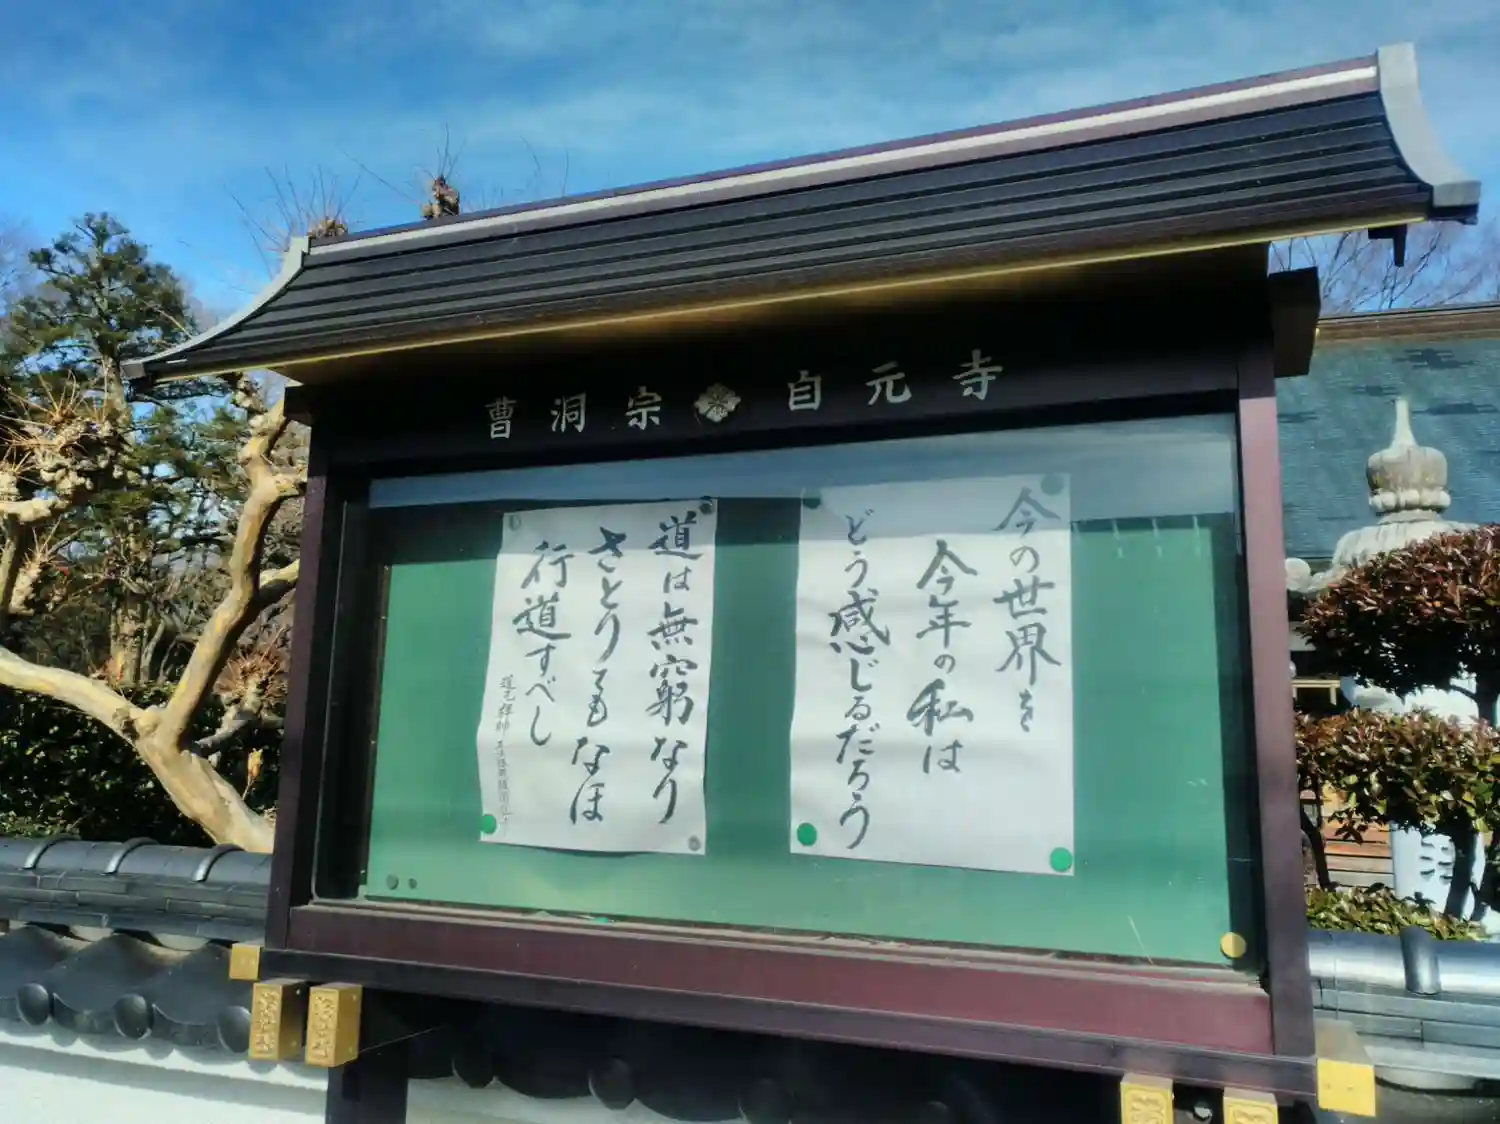 曹洞宗 自元寺
今の世界を
今年の私は
どう感じるだろう
道は無窮なり
さとりてもなほ
行道すべし
道元禅師